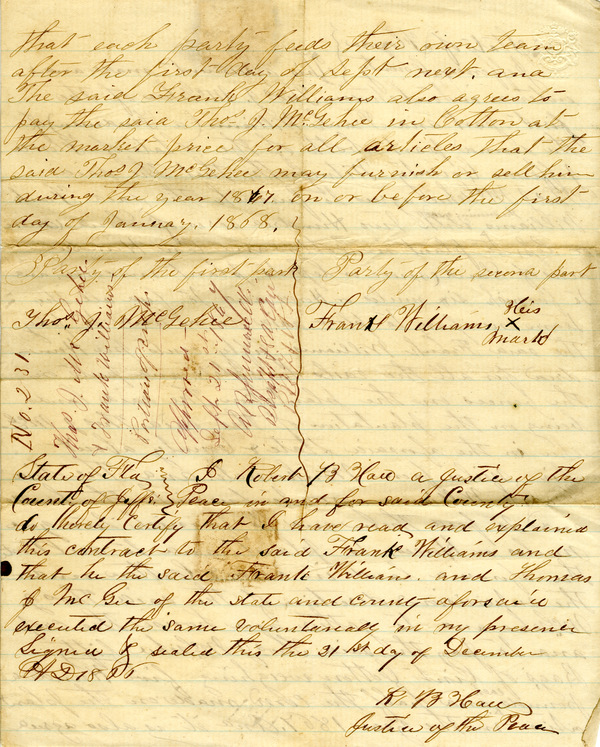 that each party feeds their own team
after the first day of Sept next. and
The said Frank Williams also agrees to
pay the said Thos. J. McGehee in Cotton at
the market price for all articles that the
said Thos J McGehee may furnish or sell him
during the year 1867. on or before the first
day of January. 1868.
Party of the first part Party of the second part
Thos. J. McGehee Frank Williams His
x
mark
No. 231.
Thos. J. McGehee
& Frank Williams
Approved
Sept 21st
State of Fla I Robert B Hau a Justice of the
County of Jeff. Peac in and for said County
do hereby Certify that I have read and explained
this contract to the said Frank Williams and
that he the said Frank Williams. and Thomas
J McGee of the state and county aforsaid
executed the same voluntarily in my presence
Signed & sealed this the 31st day of December
AD 1866
R B Hau
Justice of the Peace